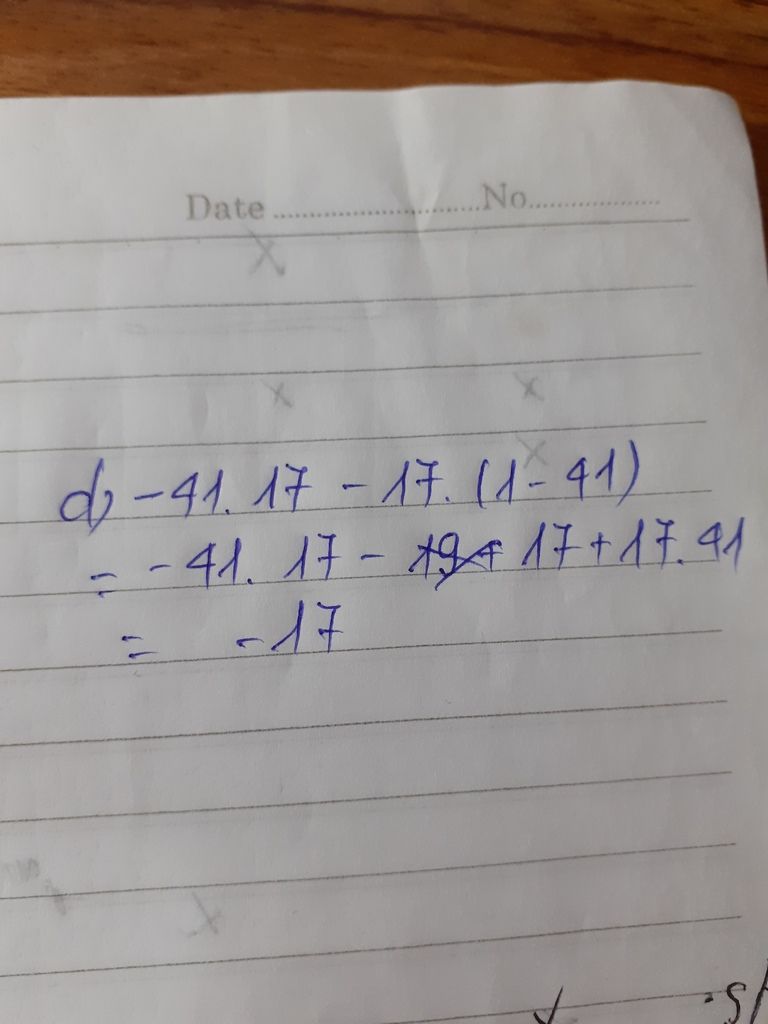 Date ........................ No ..................
d) - 41. 17 - 17. (1 - 41)
= - 41. 17 - 17 + 17. 41
= - 17